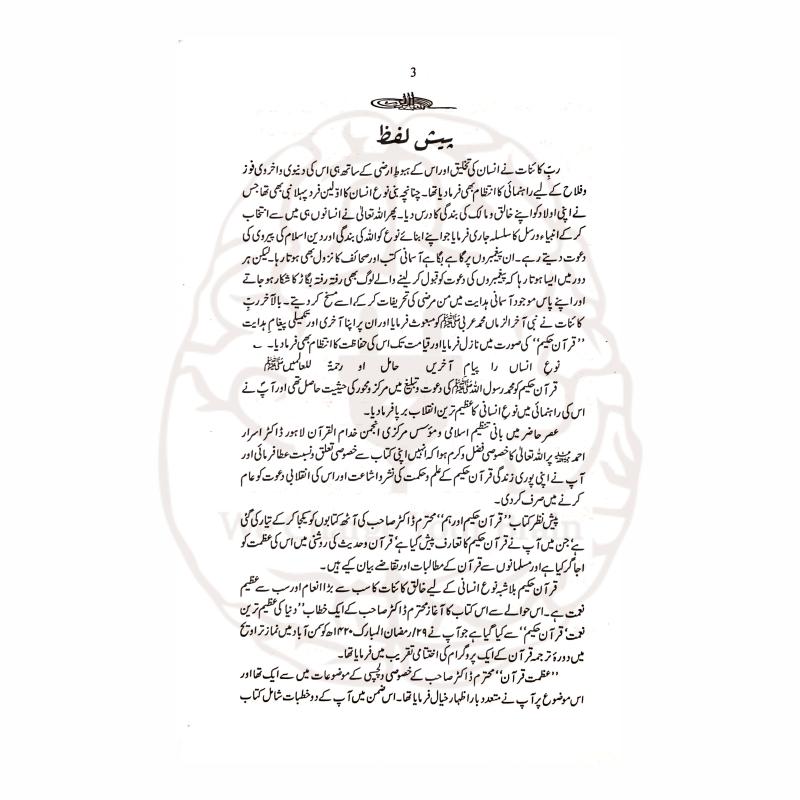 3
پیش لفظ
ربّ کائنات نے انسان کی تخلیق اور اس کے ہبوطِ ارضی کے ساتھ ہی اس کی دنیوی و اخروی فوز
و فلاح کے لیے راہنمائی کا انتظام بھی فرما دیا تھا۔ چنانچہ بنی نوع انسان کا اوّلین فرد پہلا نبی بھی تھا جس
نے اپنی اولاد کو اپنے خالق و مالک کی بندگی کا درس دیا۔ پھر اللہ تعالیٰ نے انسانوں ہی میں سے انتخاب
کر کے انبیاء و رسل کا سلسلہ جاری فرمایا جو اپنے ابنائے نوع کو اللہ کی بندگی اور دین اسلام کی پیروی کی
دعوت دیتے رہے۔ ان پیغمبروں پر گاہے بگاہے آسمانی کتب اور صحائف کا نزول بھی ہوتا رہا۔ لیکن ہر
دور میں ایسا ہوتا رہا کہ پیغمبروں کی دعوت کو قبول کر لینے والے لوگ بھی رفتہ رفتہ بگاڑ کا شکار ہو جاتے
اور اپنے پاس موجود آسمانی ہدایت میں من مرضی کی تحریفات کر کے اسے مسخ کر دیتے۔ بالآخر ربّ
کائنات نے نبی آخر الزماں محمد عربی ﷺ کو مبعوث فرمایا اور ان پر اپنا آخری اور تکمیلی پیغامِ ہدایت
''قرآن حکیم'' کی صورت میں نازل فرمایا اور قیامت تک اس کی حفاظت کا انتظام بھی فرما دیا۔ ؎
نوع انساں را پیام آخریں حامل او رحمۃ للعالمیں ﷺ
قرآن حکیم کو محمد رسول اللہ ﷺ کی دعوت و تبلیغ میں مرکز و محور کی حیثیت حاصل تھی اور آپؐ نے
اس کی راہنمائی میں نوع انسانی کا عظیم ترین انقلاب برپا فرما دیا۔
عصر حاضر میں بانی تنظیم اسلامی و مؤسس مرکزی انجمن خدام القرآن لاہور ڈاکٹر اسرار
احمد پر اللہ تعالیٰ کا خصوصی فضل و کرم ہوا کہ انہیں اپنی کتاب سے خصوصی تعلق و نسبت عطا فرمائی اور
آپ نے اپنی پوری زندگی قرآن حکیم کے علم و حکمت کی نشر و اشاعت اور اس کی انقلابی دعوت کو عام
کرنے میں صرف کر دی۔
پیش نظر کتاب ''قرآن حکیم اور ہم'' محترم ڈاکٹر صاحب کی آٹھ کتابوں کو یکجا کر کے تیار کی گئی
ہے جن میں آپ نے قرآن حکیم کا تعارف پیش کیا ہے، قرآن و حدیث کی روشنی میں اس کی عظمت کو
اجاگر کیا ہے اور مسلمانوں سے قرآن کے مطالبات اور تقاضے بیان کیے ہیں۔
قرآن حکیم بلاشبہ نوع انسانی کے لیے خالق کائنات کا سب سے بڑا انعام اور سب سے عظیم
نعمت ہے۔ اس حوالے سے اس کتاب کا آغاز محترم ڈاکٹر صاحب کے ایک خطاب ''دنیا کی عظیم ترین
نعمت: قرآن حکیم'' سے کیا گیا ہے جو آپ نے ۲۹/رمضان المبارک ۱۴۲۰ھ کو سمن آباد میں نماز تراویح
میں دورۂ ترجمہ قرآن کے ایک پروگرام کی اختتامی تقریب میں فرمایا تھا۔
''عظمت قرآن'' محترم ڈاکٹر صاحب کے خصوصی دلچسپی کے موضوعات میں سے ایک تھا اور
اس موضوع پر آپ نے متعدد بار اظہار خیال فرمایا تھا۔ اس ضمن میں آپ کے دو خطبات شامل کتاب